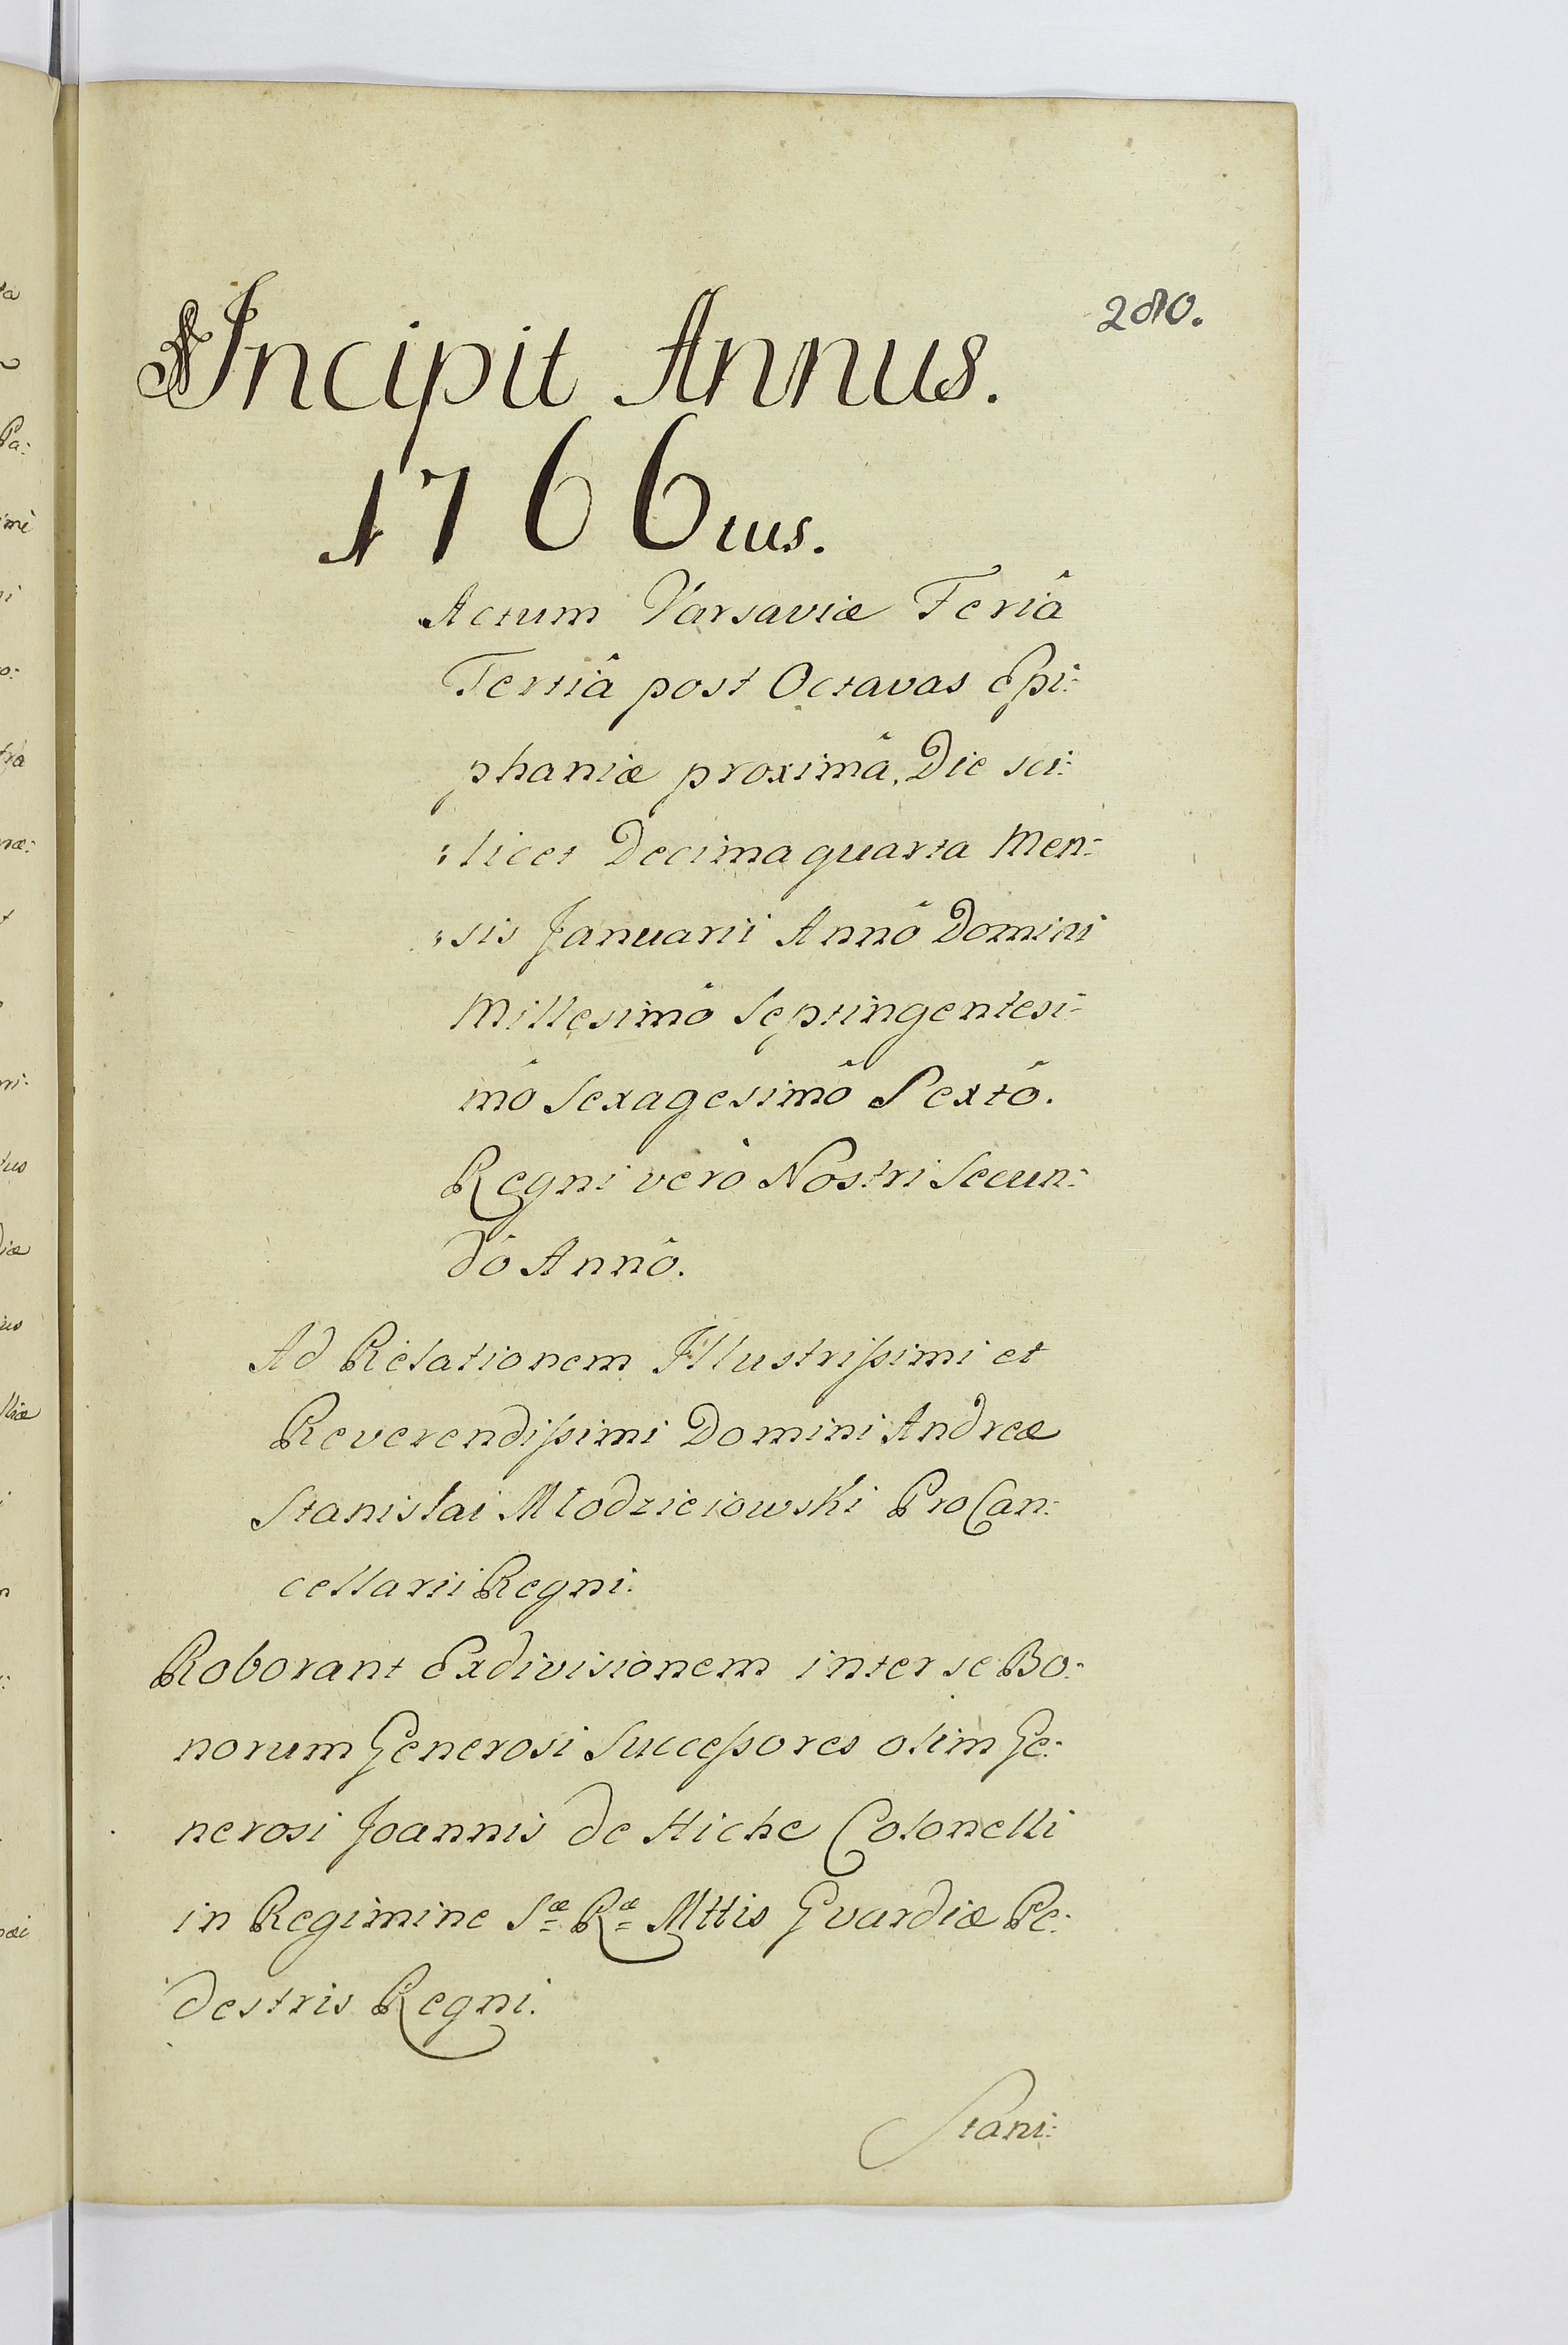 280.
Incipit Annus.
1766tus.
Actum Varsaviæ Feriâ
Tertiâ post Octavas Epi:
phaniæ proximâ, Die sci:
:licet Decima quarta Men:
:sis Januarii Annô Domini
Millesimô Septingentesi:
mô Sexagesimô Sextô.
Regni verò Nostri Secun:
dô Annô.
Ad Relationem Illustrissimi et
Reverendissimi Domini Andreæ
Stanislai Mlodzieiowski ProCan:
cellarii Regni.
Roborant Exdivisionem inter se Bo:
norum Generosi Successores olim Ge:
nerosi Joannis de Hiche Colonelli
in Regimine Sæ Ræ Mttis Gvardiæ Pe:
destris Regni.
Stani: